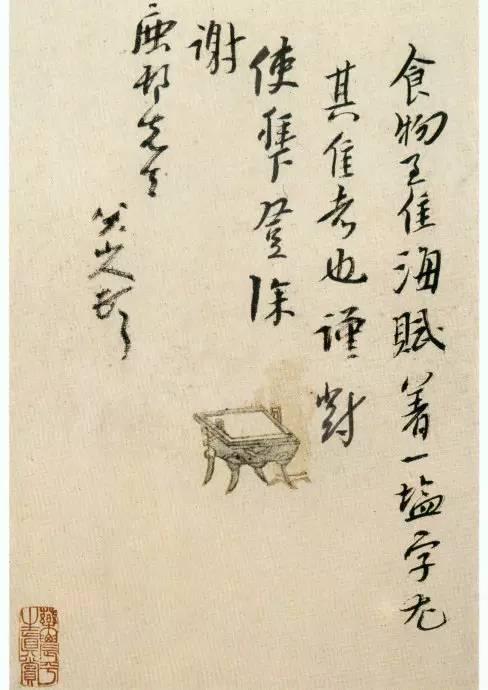 食物至佳海賦着一塩字尤
其佳者也謹對
使拜登徐
謝
鹿邨先生
八大山人